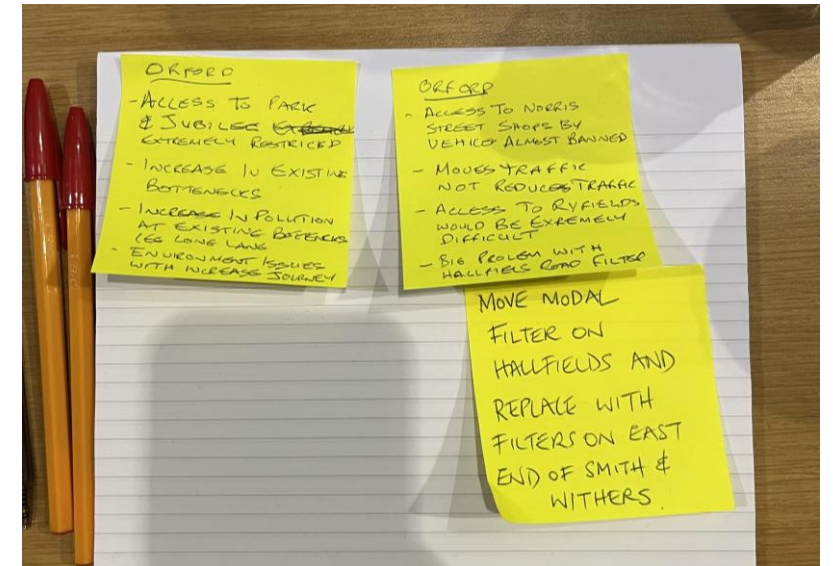 ORFORD
- ACCESS TO PARK
& JUBILEE
EXTREMELY RESTRICED
- INCREASE IN EXISTING
BOTTENECKS
- INCREASE IN POLLUTION
AT EXISTING BOTTENECKS
LEG LONG LANE
- ENVIRONMENT ISSUES
WITH INCREASE JOURNEY
ORFORD
- ACCESS TO NORRIS
STREET SHOPS BY
VEHICLE ALMOST BANNED
- MOVES TRAFFIC
NOT REDUCES TRAFFIC
- ACCESS TO RYFIELDS
WOULD BE EXREMELY
DIFFICULT
- BIG PROLEM WITH
HALLFIELS ROAD FILTER
MOVE MODAL
FILTER ON
HALLFIELDS AND
REPLACE WITH
FILTERS ON EAST
END OF SMITH &
WITHERS.